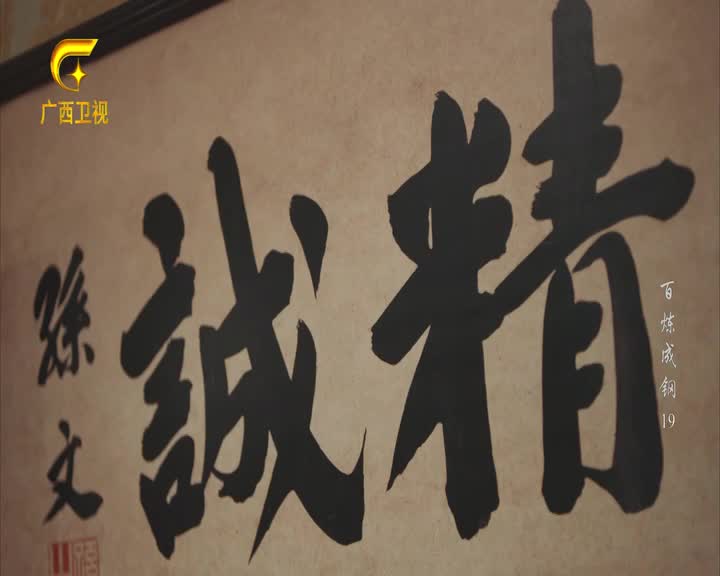 广西卫视
精誠
孫文
百炼成钢19